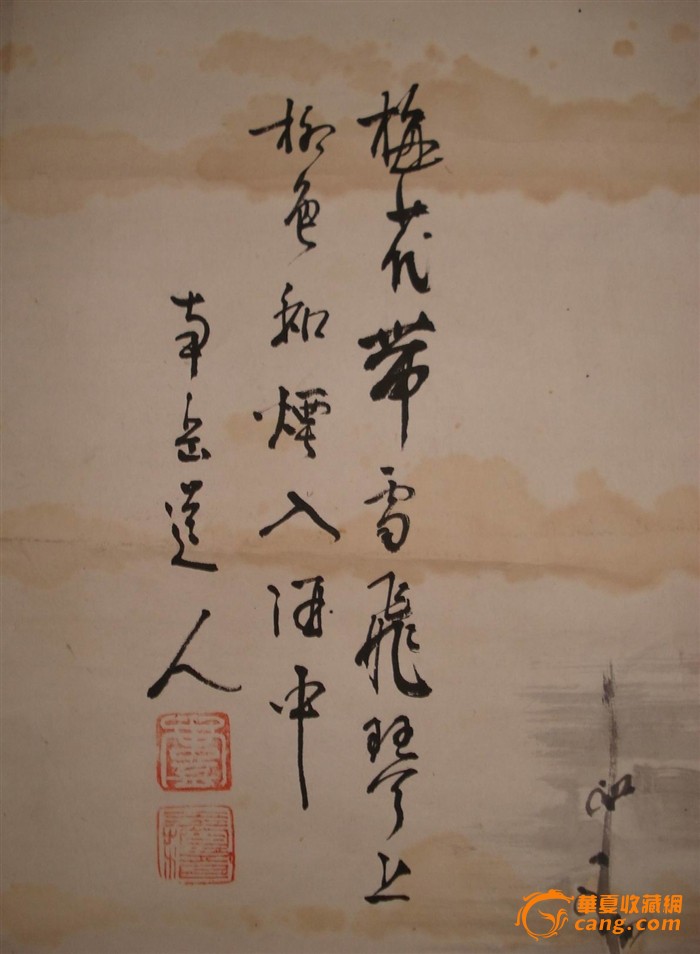 梅花带雪飛琴上
柳色和煙入酒中
南岳道人
華夏收藏網
cang.com